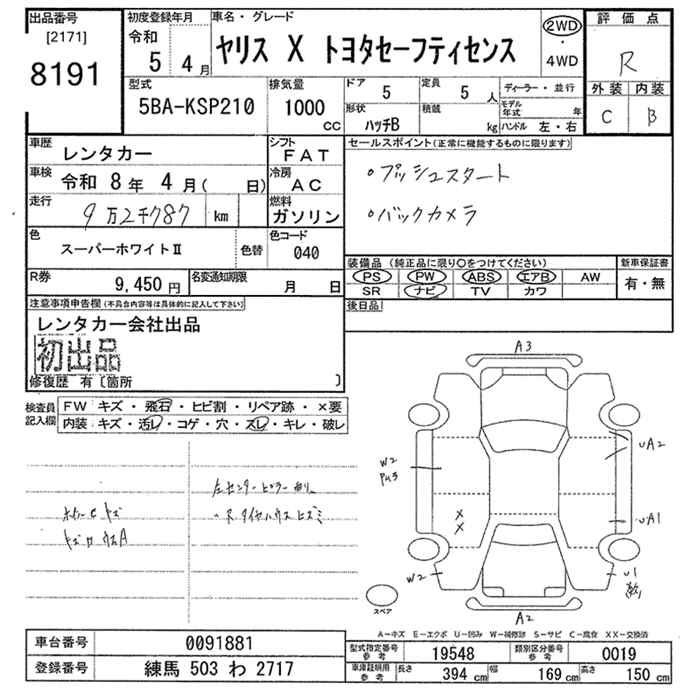 出品番号
[2171]
8191
初度登録年月
令和
5 4月
車名・グレード
ヤリス X トヨタセーフティセンス
2WD
・
4WD
評価点
R
外装 内装
C B
型式
5BA-KSP210
排気量
1000
cc
ドア
5
定員
5 人
形状
ハッチB
積載
kg
ディーラー・並行
モデル年式 年
ハンドル 左・右
車歴
レンタカー
シフト
FAT
車検
令和 8年 4月( 日)
冷房
AC
走行
9万2千787 km
燃料
ガソリン
色
スーパーホワイトⅡ
色替
色コード
040
R券
9,450円
名変通知期限
月 日
セールスポイント(正常に機能するものに限ります)
。プッシュスタート
。バックカメラ
装備品(純正品に限り○をつけてください)
PS PW ABS エアB AW
SR ナビ TV カワ
新車保証書
有・無
後日品
注意事項申告欄(不具合内容等は具体的に記入して下さい)
レンタカー会社出品
初出品
修復歴 有〔箇所 〕
検査員
記入欄
FW キズ・飛石・ヒビ割・リペア跡・×要
内装 キズ・汚レ・コゲ・穴・スレ・キレ・破レ
左センターピラー
タイヤハウスヒズミ
A3
W2
UA2
UA1
×
×
W2
U1
A2
スペア
A-キズ E-エクボ U-凹み W-補修跡 S-サビ C-腐食 XX-交換済
車台番号
0091881
登録番号
練馬 503 わ 2717
型式指定番号
参考
19548
類別区分番号
参考
0019
車庫証明用
参考
長さ 394 cm 幅 169 cm 高さ 150 cm